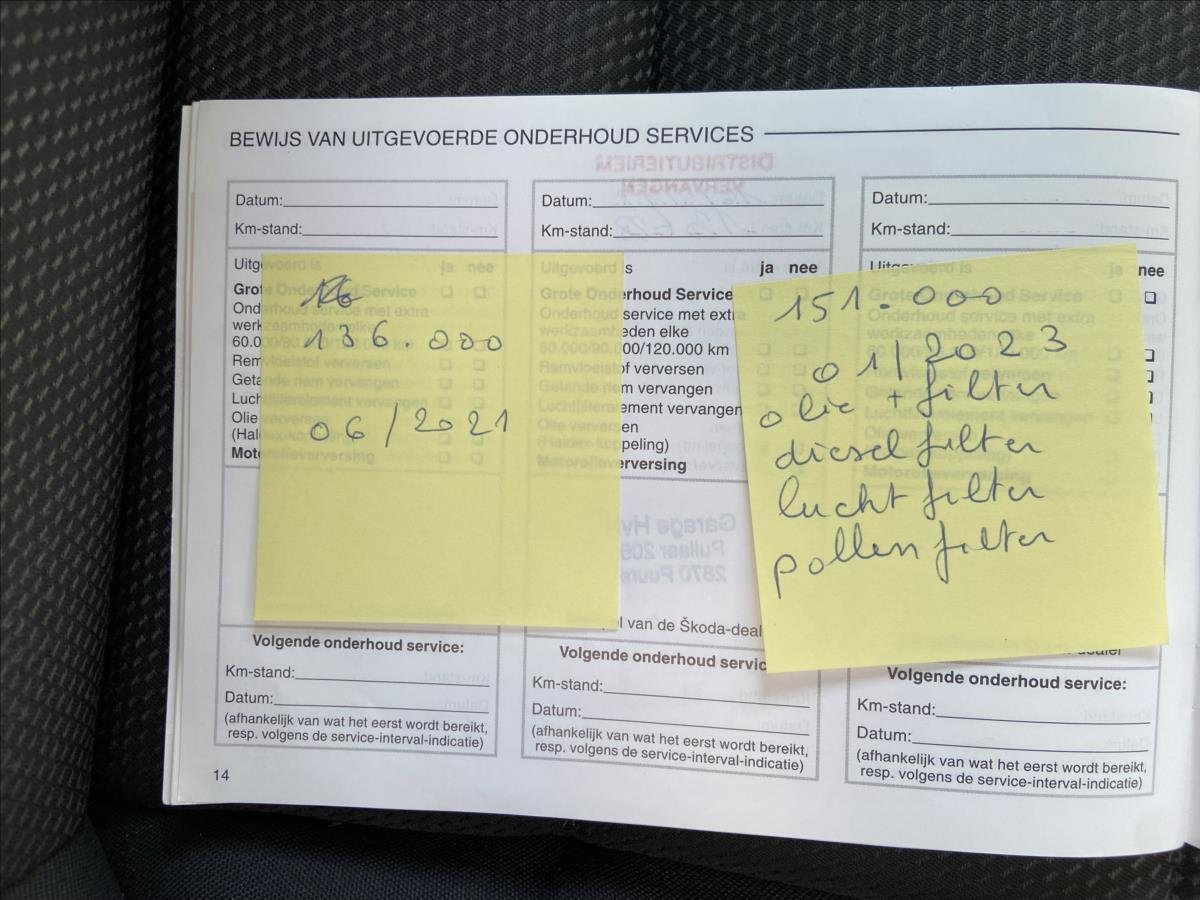 BEWIJS VAN UITGEVOERDE ONDERHOUD SERVICES
DISTRIBUTIERIEM
VERVANGEN
Datum:
Km-stand:
Uitgevoerd is ja nee
Grote Onderhoud Service
Onderhoud service met extra
werkzaamheden elke
60.000/90.000/120.000 km
Remvloeistof verversen
Getande riem vervangen
Luchtfilterelement vervangen
Olie verversen
(Haldex-koppeling)
Motorolieverversing
136.000
06/2021
Volgende onderhoud service:
Km-stand:
Datum:
(afhankelijk van wat het eerst wordt bereikt,
resp. volgens de service-interval-indicatie)
Datum:
Km-stand:
Uitgevoerd is ja nee
Grote Onderhoud Service
Onderhoud service met extra
werkzaamheden elke
60.000/90.000/120.000 km
Remvloeistof verversen
Getande riem vervangen
Luchtfilterelement vervangen
Olie verversen
(Haldex-koppeling)
Motorolieverversing
Garage
Pullaar
2870 Puurs
van de Škoda-deal
Volgende onderhoud servic
Km-stand:
Datum:
(afhankelijk van wat het eerst wordt bereikt,
resp. volgens de service-interval-indicatie)
Datum:
Km-stand:
Uitgevoerd is ja nee
151.000
01/2023
olie + filter
diesel filter
lucht filter
pollen filter
dealer
Volgende onderhoud service:
Km-stand:
Datum:
(afhankelijk van wat het eerst wordt bereikt,
resp. volgens de service-interval-indicatie)
14